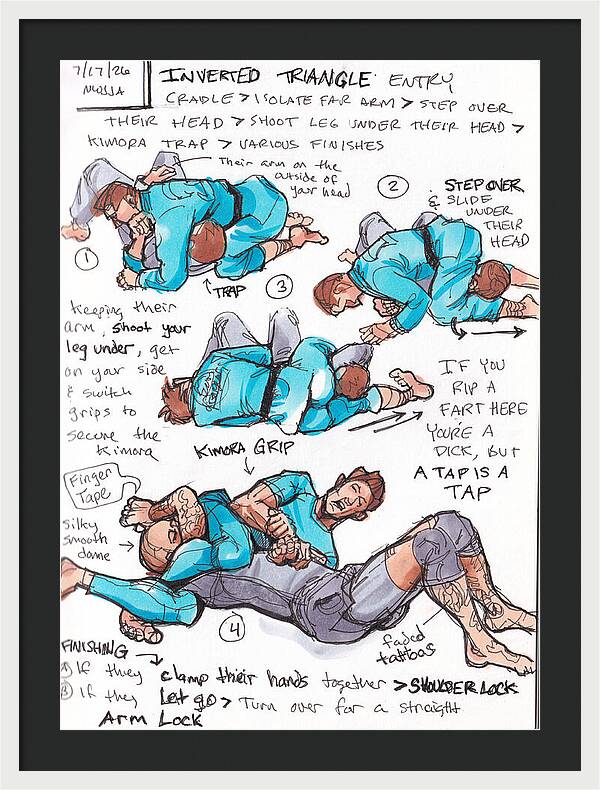 7/17/26
INVERTED TRIANGLE ENTRY
CRADLE > ISOLATE FAR ARM > STEP OVER
THEIR HEAD > SHOOT LEG UNDER THEIR HEAD >
KIMORA TRAP > VARIOUS FINISHES
Their arm on the
outside of
your head
1
TRAP
2
STEP OVER
& SLIDE
UNDER
THEIR
HEAD
3
keeping their
arm, shoot your
leg under, get
on your side
& switch
grips to
secure the
Kimora
KIMORA GRIP
IF YOU
RIP A
FART HERE
YOU'RE A
DICK, BUT
A TAP IS A
TAP
Finger
Tape
silky
smooth
dome
4
faded
tattoos
FINISHING
A) If they clamp their hands together > SHOULDER LOCK
B) If they Let go > Turn over for a straight
Arm Lock